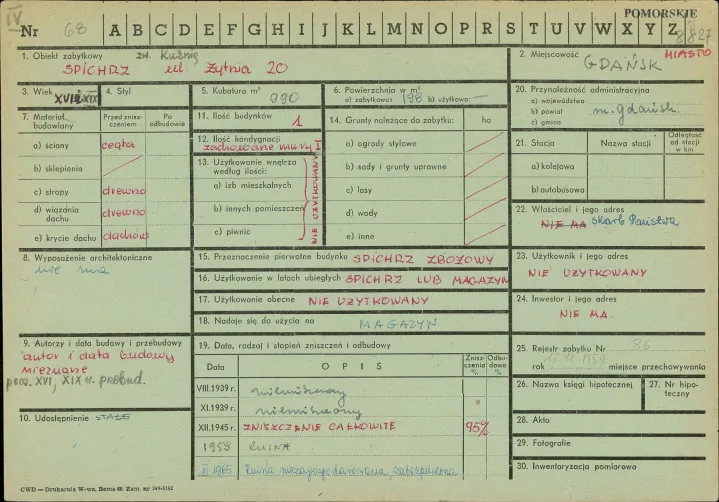 IV
POMORSKIE
Nr 68 A B C D E F G H I J K L M N O P R S T U V W X Y Z 8827
1. Obiekt zabytkowy zw. Kuźnią
SPICHRZ ul Żytnia 20
2. Miejscowość MIASTO
GDAŃSK
3. Wiek XVII XIX
4. Styl
5. Kubatura m³
990
6. Powierzchnia w m²
a) zabytkowa: 198 b) użytkowa: —
20. Przynależność administracyjna
a) województwo
b) powiat m. gdańsk.
c) gmina
7. Materiał budowlany
Przed zniszczeniem
Po odbudowie
a) ściany cegła
b) sklepienia
c) stropy drewno
d) wiązania dachu drewno
e) krycie dachu dachów
11. Ilość budynków 1
12. Ilość kondygnacji
zachowane mury I
13. Użytkowanie wnętrza według ilości:
a) izb mieszkalnych
b) innych pomieszczeń
c) piwnic
NIE UŻYTKOWANY
14. Grunty należące do zabytku: ha
a) ogrody stylowe
b) sady i grunty uprawne
c) lasy
d) wody
e) inne
21. Stacja Nazwa stacji Odległość od stacji w km
a) kolejowa
b) autobusowa
22. Właściciel i jego adres
NIE MA Skarb Państwa
8. Wyposażenie architektoniczne
nie ma
15. Przeznaczenie pierwotne budynku SPICHRZ ZBOŻOWY
16. Użytkowanie w latach ubiegłych SPICHRZ LUB MAGAZYN
17. Użytkowanie obecne NIE UŻYTKOWANY
18. Nadaje się do użycia na MAGAZYN
23. Użytkownik i jego adres
NIE UŻYTKOWANY
24. Inwestor i jego adres
NIE MA.
9. Autorzy i data budowy i przebudowy
autor i data budowy
nieznane
pocz. XVI, XIX w. przebud.
10. Udostępnienie STAŁE
19. Data, rodzaj i stopień zniszczeń i odbudowy
Data OPIS Zniszczenia % Odbudowa %
VIII.1939 r. niezniszczony
XI.1939 r. niezniszczony "
XII.1945 r. ZNISZCZENIE CAŁKOWITE 95%
1959 RUINA
XI 1965 Ruina niezagospodarowana, zabezpieczona
25. Rejestr zabytku Nr 86
rok 1959 miejsce przechowywania
26. Nazwa księgi hipotecznej
27. Nr hipoteczny
28. Akta
29. Fotografie
30. Inwentaryzacja pomiarowa
CWD — Drukarnia W-wa, Bema 60. Zam. nr 349-5162